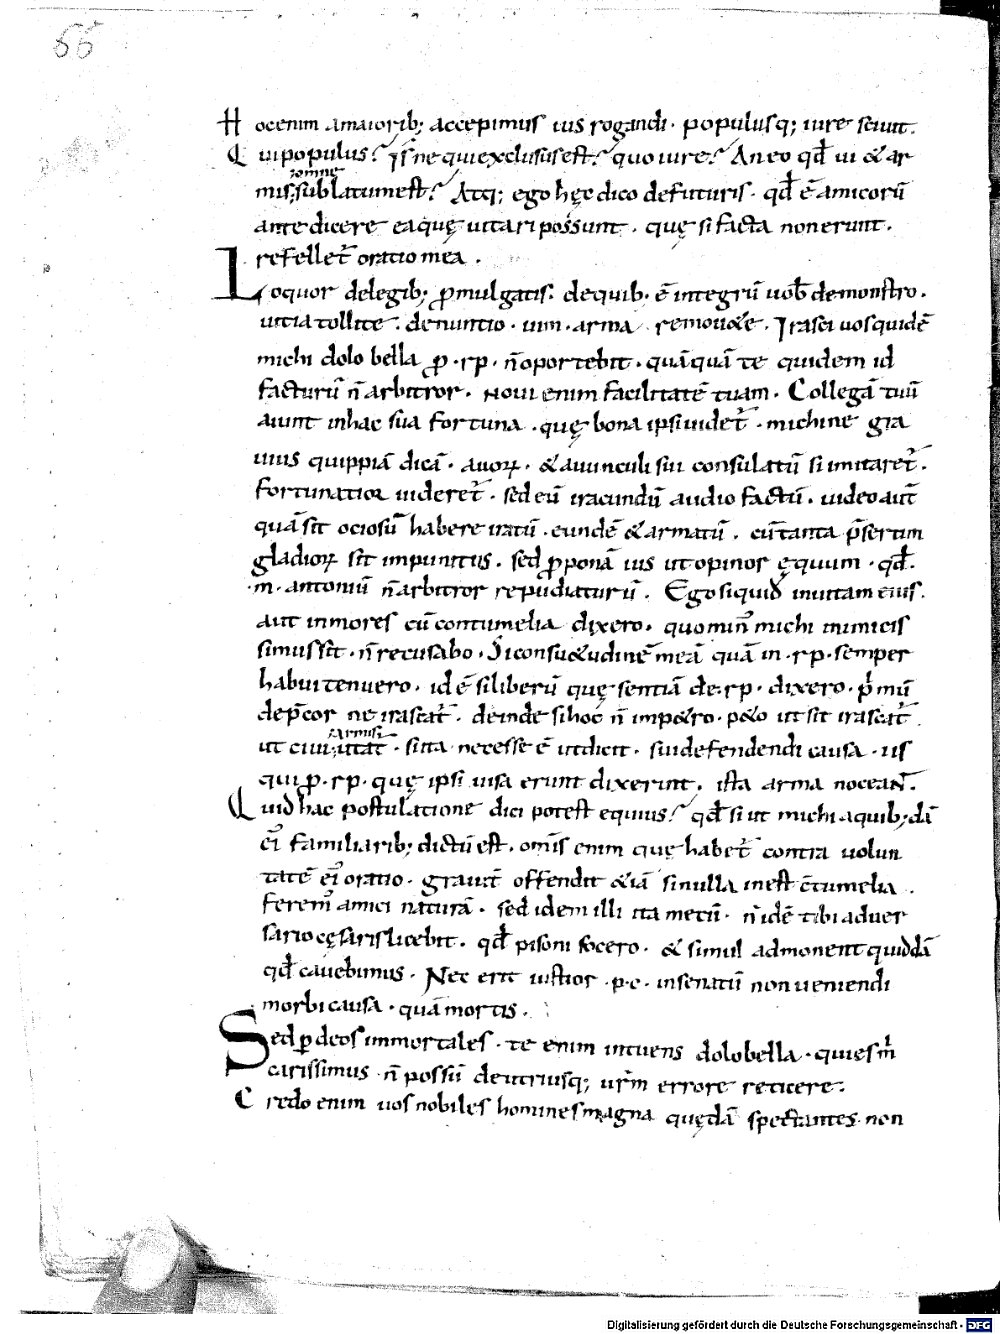 66
Hoc enim a maiorib; accepimus ius rogandi· populusq; iure sciuit.
Qui populus? Is ne qui exclusus est? quo iure? An eo qđ ui & ar
omne
mis; sublatum est? Atq; ego hęc dico de futuris· qđ ē amicorū
ante dicere ea quę uitari possunt· quę si facta non erunt·
refellet̄ oratio mea·
Loquor de legib; ꝓmulgatis· de quib; ē integrū uob̄ demonstro·
uitia tollite· denuntio· uim· arma remou&e· Irasci uos quidē
michi dolobella ꝓ·rp· ñ oportebit· quāquā te quidem id
facturū ñ arbitror· Noui enim facilitatē tuam· Collegā tuū
aiunt in hac sua fortuna· quę bona ipsi uidet̄· michi ne gra
uius quippiā dicā· auoꝝ· & auunculi sui consulatū si imitaret̄·
fortunatior uideret̄· sed eū iracundū audio factū· uideo aut̄
quā sit ociosū habere iratū· eundē & armatū· cū tanta p̄sertim
gladioꝝ sit impunitas· sed ꝓponā ius ut opinor ęquum· qđ·
·m· antoniū ñ arbitror repudiaturū· Ego si quid in uitam eius·
aut in mores cū contumelia dixero· quo min᾽ michi inimicis
simus sit· ñ recusabo· Si consu&udinē meā quā in·rp·semper
habui tenuero· id ē si liberū quę sentiā de·rp· dixero· p̍mū
dep̄cor ne irascat̄· deinde si hoc ñ imp&ro· p&o ut sit irascat̄·
armis
ut ciui; utat̄· sin ita necesse ē ut dicit· sui defendendi causa· iis
qui ꝓ·rp· quę ipsi uisa erunt dixerint· ista arma noceant̄·
Quid hac postulatione dici potest equius? qđ si ut michi a quib;dā
ei᾽ familiarib; dictū est· om̄is enim que habet̄ contra uolun
tatē ei᾽ oratio· grauit̄ offendit &iā si nulla inest c̄tumelia·
ferem᾽ amici naturā· sed idem illi ita mecū· ñ idē tibi aduer
sario cęsaris licebit· qđ pisoni socero· & simul admonent quiddā
qđ cauebimus· Nec erit iustior·p·c· in senatū non ueniendi
morbi causa· quā mortis·
Sed ꝑ deos immortales· te enim intuens dolobella· qui es m̍
carissimus ñ possū de utriusq; ur̄m errore reticere·
Credo enim uos nobiles homines magna quędā spectantes non
Digitalisierung gefördert durch die Deutsche Forschungsgemeinschaft - DFG